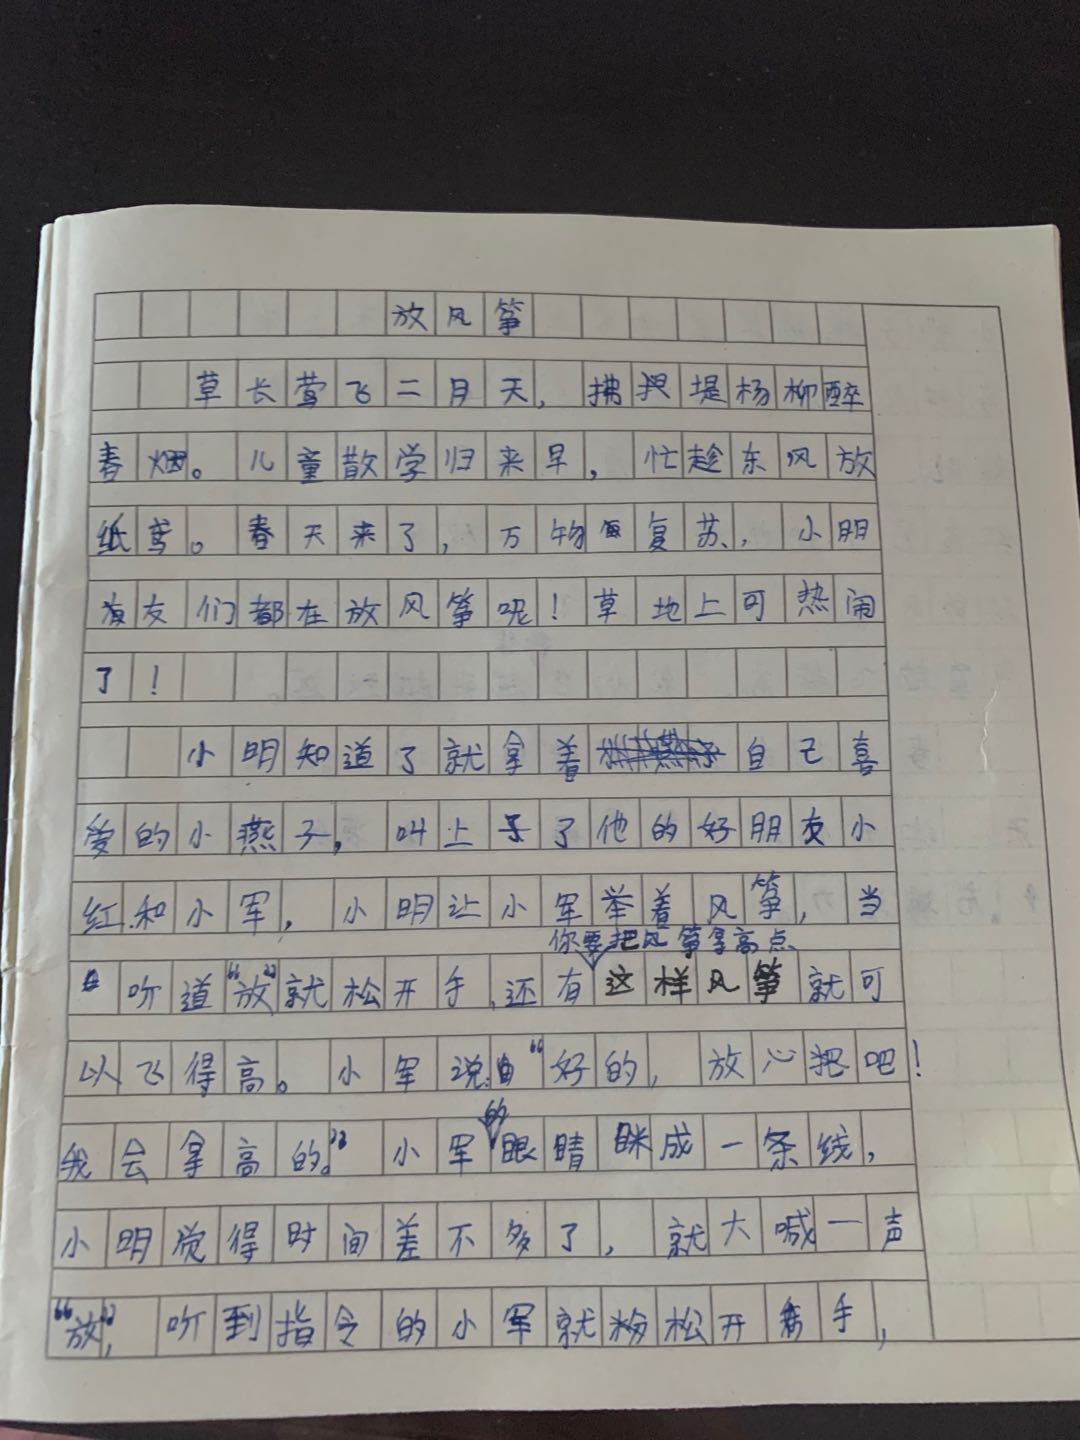 放风筝
草长莺飞二月天，拂堤杨柳醉
春烟。儿童散学归来早，忙趁东风放
纸鸢。春天来了，万物复苏，小朋
友们都在放风筝呢！草地上可热闹
了！
小明知道了就拿着自己喜
爱的小燕子，叫上了他的好朋友小
红和小军，小明让小军举着风筝，当
你要把风筝拿高点
听道“放”就松开手，还有这样风筝就可
以飞得高。小军说：“好的，放心把吧！
我会拿高的。”小军的眼睛眯成一条线，
小明觉得时间差不多了，就大喊一声
“放”，听到指令的小军就松开手，